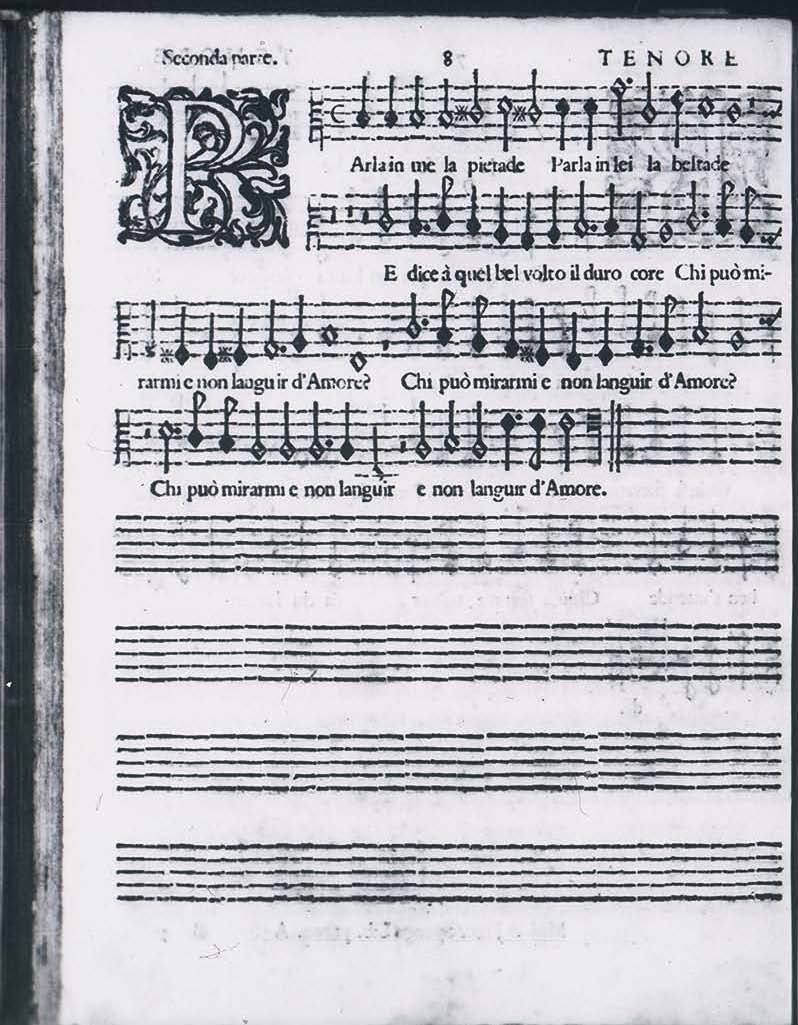 Seconda parte. 8 TENORE
PArla in me la pietade Parla in lei la beltade
E dice à quel bel volto il duro core Chi può mi-
rarmi e non languir d'Amore? Chi può mirarmi e non languir d'Amore?
Chi può mirarmi e non languir e non languir d'Amore.